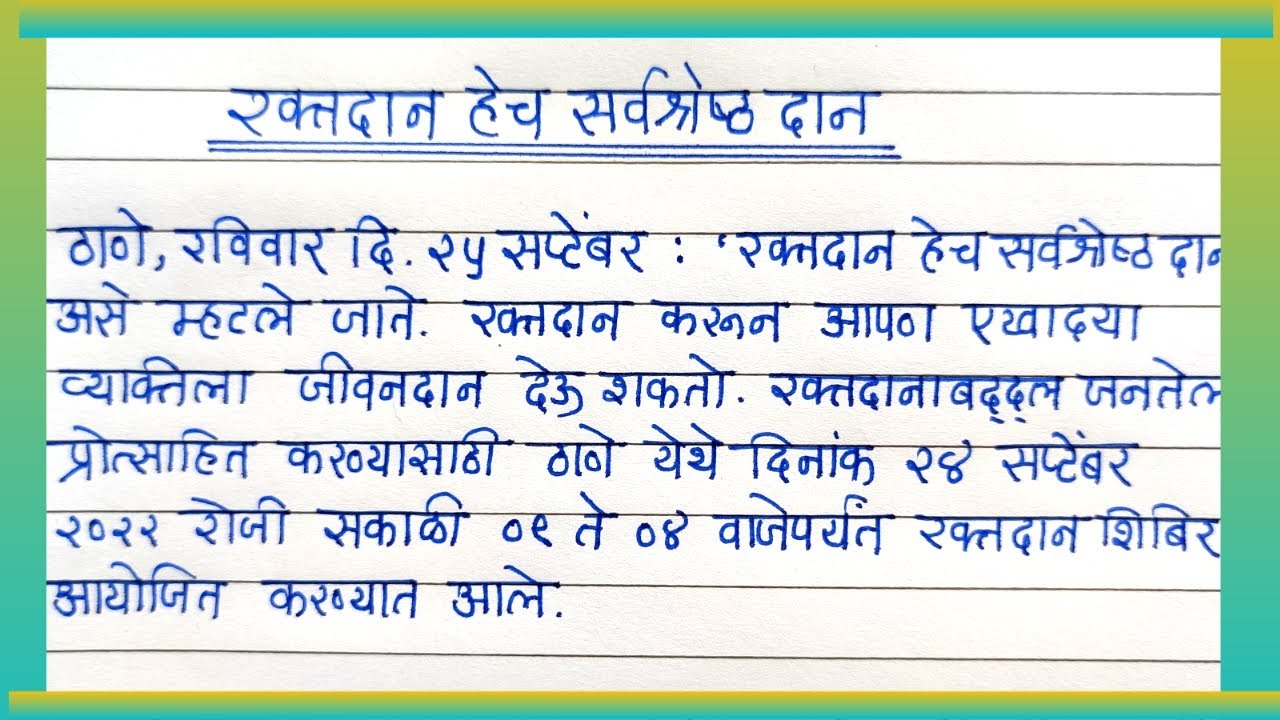 रक्तदान हेच सर्वश्रेष्ठ दान
ठाणे, रविवार दि. २५ सप्टेंबर : 'रक्तदान हेच सर्वश्रेष्ठ दान
असे म्हटले जाते. रक्तदान करून आपण एखादया
व्यक्तिला जीवनदान देऊ शकतो. रक्तदानाबद्द्ल जनतेल
प्रोत्साहित करण्यासाठी ठाणे येथे दिनांक २४ सप्टेंबर
२०२२ रोजी सकाळी ०९ ते ०४ वाजेपर्यंत रक्तदान शिबिर
आयोजित करण्यात आले.